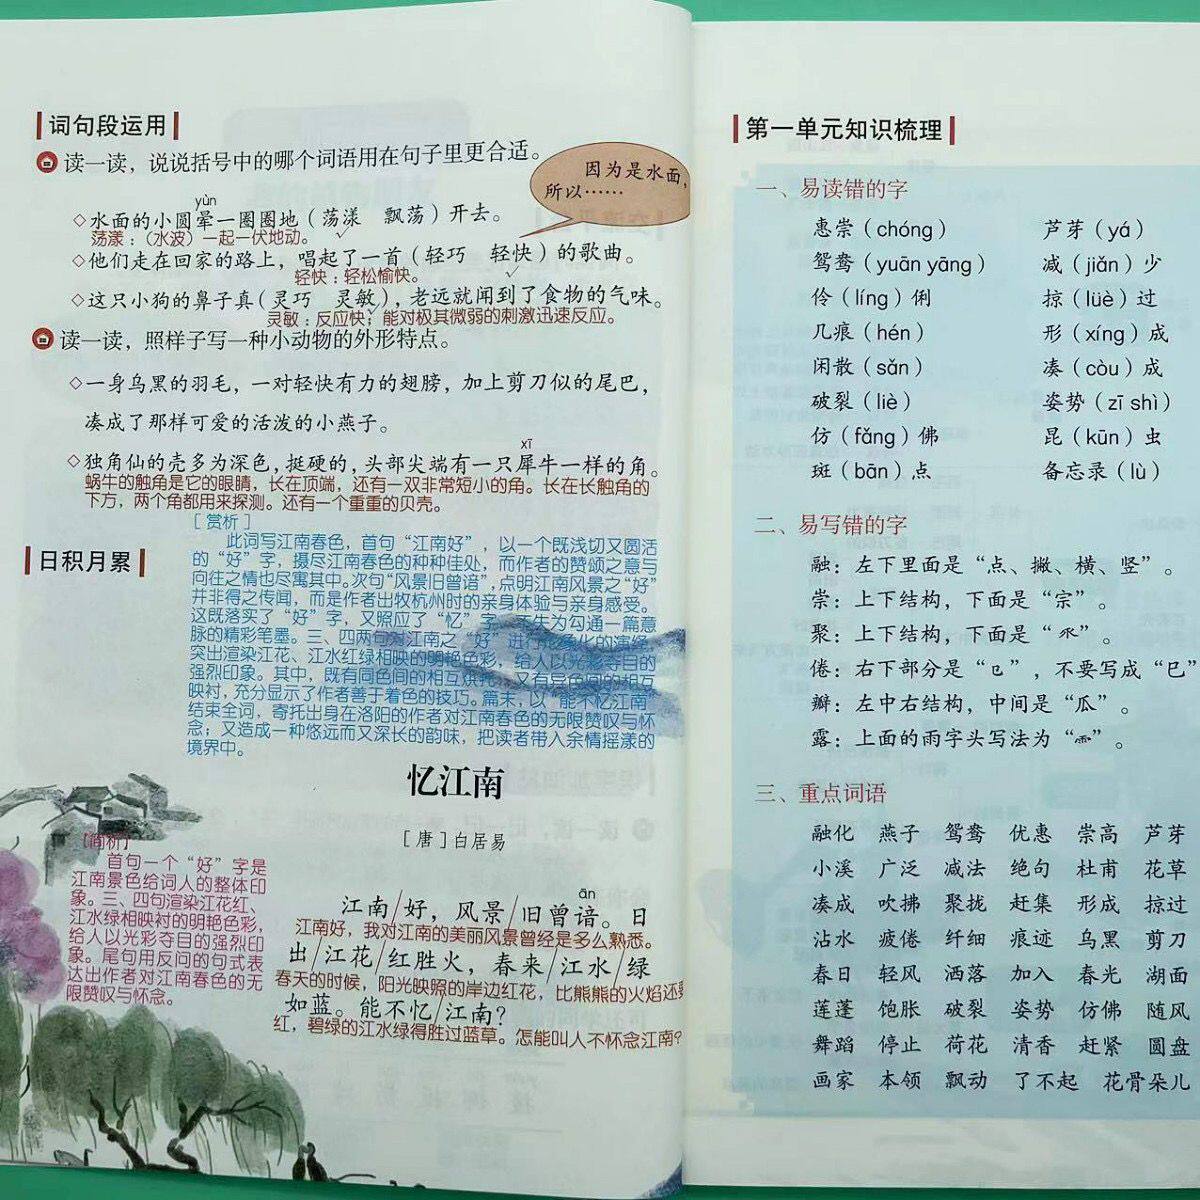 词句段运用
读一读，说说括号中的哪个词语用在句子里更合适。
因为是水面，
所以……
yùn
◇水面的小圆晕一圈圈地（荡漾　飘荡）开去。
荡漾：（水波）一起一伏地动。
◇他们走在回家的路上，唱起了一首（轻巧　轻快）的歌曲。
轻快：轻松愉快。
◇这只小狗的鼻子真（灵巧　灵敏），老远就闻到了食物的气味。
灵敏：反应快；能对极其微弱的刺激迅速反应。
读一读，照样子写一种小动物的外形特点。
◇一身乌黑的羽毛，一对轻快有力的翅膀，加上剪刀似的尾巴，
凑成了那样可爱的活泼的小燕子。
xī
◇独角仙的壳多为深色，挺硬的，头部尖端有一只犀牛一样的角。
蜗牛的触角是它的眼睛，长在顶端，还有一双非常短小的角。长在长触角的
下方，两个角都用来探测。还有一个重重的贝壳。
日积月累
［赏析］
此词写江南春色，首句“江南好”，以一个既浅切又圆活
的“好”字，摄尽江南春色的种种佳处，而作者的赞颂之意与
向往之情也尽寓其中。次句“风景旧曾谙”，点明江南风景之“好”
并非得之传闻，而是作者出牧杭州时的亲身体验与亲身感受。
这既落实了“好”字，又照应了“忆”字，不失为勾通一篇意
脉的精彩笔墨。三、四两句对江南之“好”进行形象化的演绎，
突出渲染江花、江水红绿相映的明艳色彩，给人以光彩夺目的
强烈印象。其中，既有同色间的相互烘托，又有异色间的相互
映衬，充分显示了作者善于着色的技巧。篇末，以“能不忆江南”
结束全词，寄托出身在洛阳的作者对江南春色的无限赞叹与怀
念；又造成一种悠远而又深长的韵味，把读者带入余情摇漾的
境界中。
忆江南
［唐］白居易
[简析]
首句一个“好”字是
江南景色给词人的整体印
象。三、四句渲染江花红、
江水绿相映衬的明艳色彩，
给人以光彩夺目的强烈印
象。尾句用反问的句式表
达出作者对江南春色的无
限赞叹与怀念。
ān
江南/好，风景/旧曾谙。日
江南好，我对江南的美丽风景曾经是多么熟悉。
出/江花/红胜火，春来/江水/绿
春天的时候，阳光映照的岸边红花，比熊熊的火焰还要
如蓝。能不忆/江南？
红，碧绿的江水绿得胜过蓝草。怎能叫人不怀念江南？
第一单元知识梳理
一、易读错的字
惠崇（chóng）　芦芽（yá）
鸳鸯（yuān yāng）　减（jiǎn）少
伶（líng）俐　掠（lüè）过
几痕（hén）　形（xíng）成
闲散（sǎn）　凑（còu）成
破裂（liè）　姿势（zī shì）
仿（fǎng）佛　昆（kūn）虫
斑（bān）点　备忘录（lù）
二、易写错的字
融：左下里面是“点、撇、横、竖”。
崇：上下结构，下面是“宗”。
聚：上下结构，下面是“乑”。
倦：右下部分是“㔾”，不要写成“巳”
瓣：左中右结构，中间是“瓜”。
露：上面的雨字头写法为“⻗”。
三、重点词语
融化　燕子　鸳鸯　优惠　崇高　芦芽
小溪　广泛　减法　绝句　杜甫　花草
凑成　吹拂　聚拢　赶集　形成　掠过
沾水　疲倦　纤细　痕迹　乌黑　剪刀
春日　轻风　洒落　加入　春光　湖面
莲蓬　饱胀　破裂　姿势　仿佛　随风
舞蹈　停止　荷花　清香　赶紧　圆盘
画家　本领　飘动　了不起　花骨朵儿